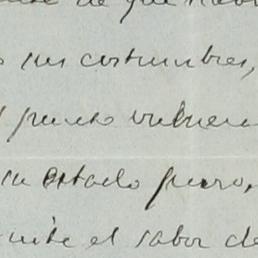 de que
sus costumbres,
punto vulnera
su estado puro,
el sabor de